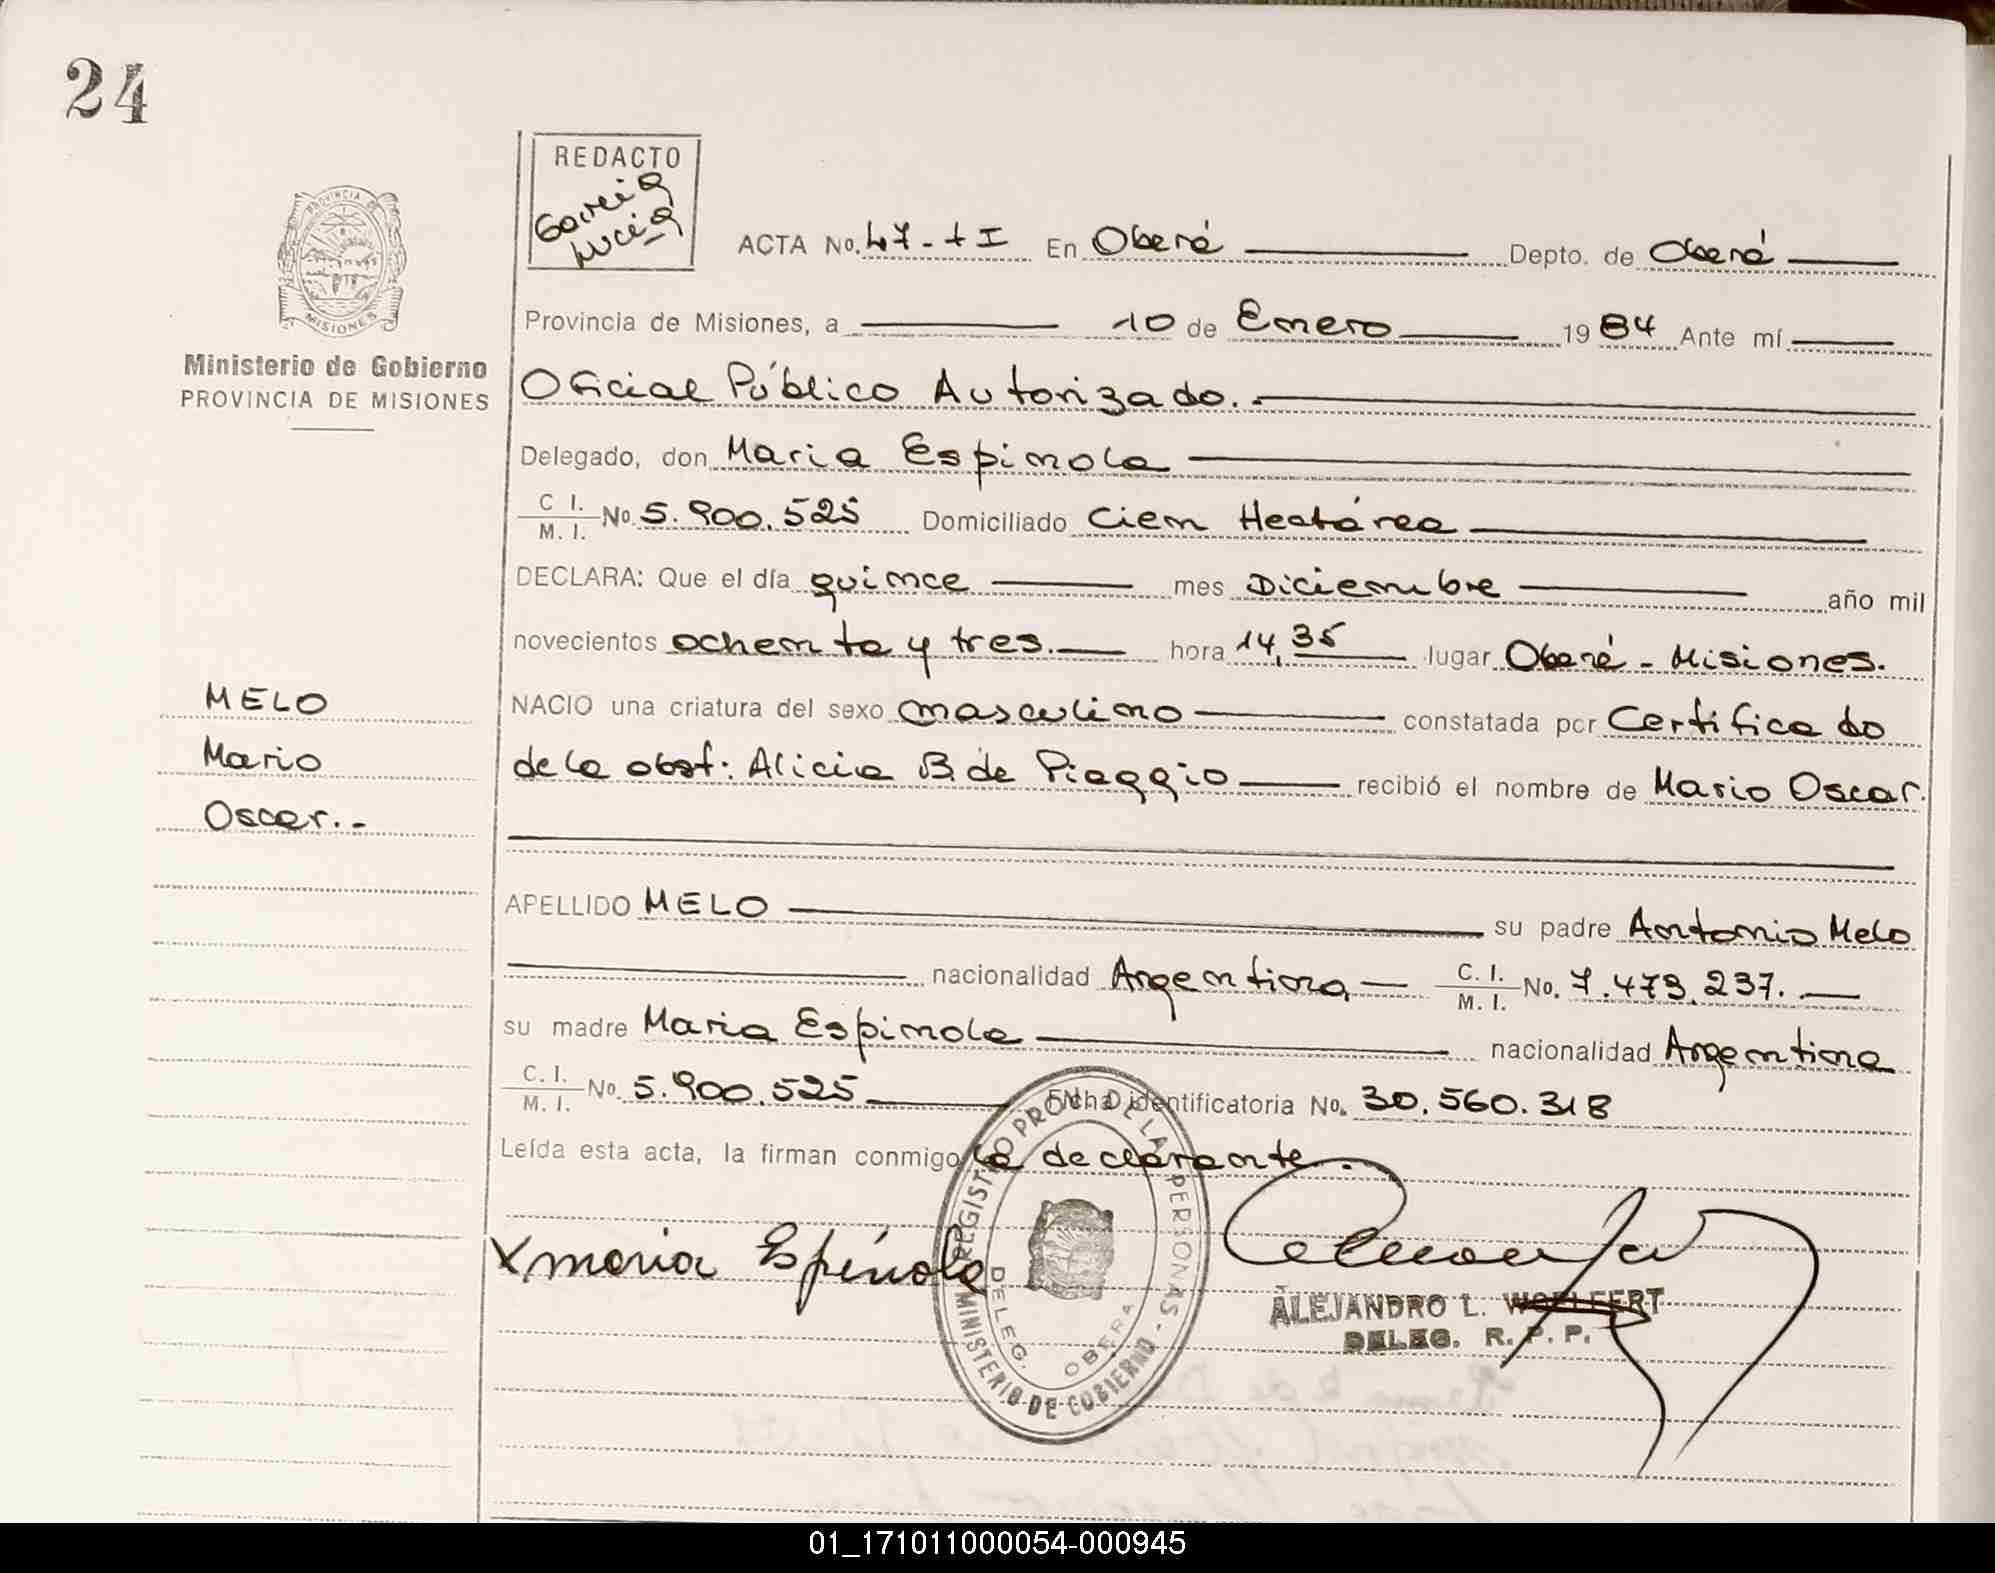 24
REDACTO
Lucia
PROVINCIA DE
MISIONES
Ministerio de Gobierno
PROVINCIA DE MISIONES
ACTA No. 47 - I En Oberá Depto. de Oberá
Provincia de Misiones, a 10 de Enero 1984 Ante mí
Oficial Público Autorizado.-
Delegado, don Maria Espinola
C I. / M. I. No. 5.900.525 Domiciliado Cien Hectárea
DECLARA: Que el día quince mes Diciembre año mil
novecientos ochenta y tres. hora 14,35 lugar Oberá - Misiones.
MELO
NACIO una criatura del sexo masculino constatada por Certificado
Mario
de la obst: Alicia B. de Piaggio recibió el nombre de Mario Oscar.
Oscar.-
APELLIDO MELO su padre Antonio Melo
nacionalidad Argentina C. I. / M. I. No. 7.473.237.
su madre Maria Espinola nacionalidad Argentina
C. I. / M. I. No. 5.900.525 Ficha identificatoria No. 30.560.318
Leída esta acta, la firman conmigo la declarante.
x maria Espínola
REGISTRO PROV. DE LAS PERSONAS - MINISTERIO DE GOBIERNO
DELEG. OBERA
ALEJANDRO L. WOELFERT
DELEG. R. P. P.
01_171011000054-000945